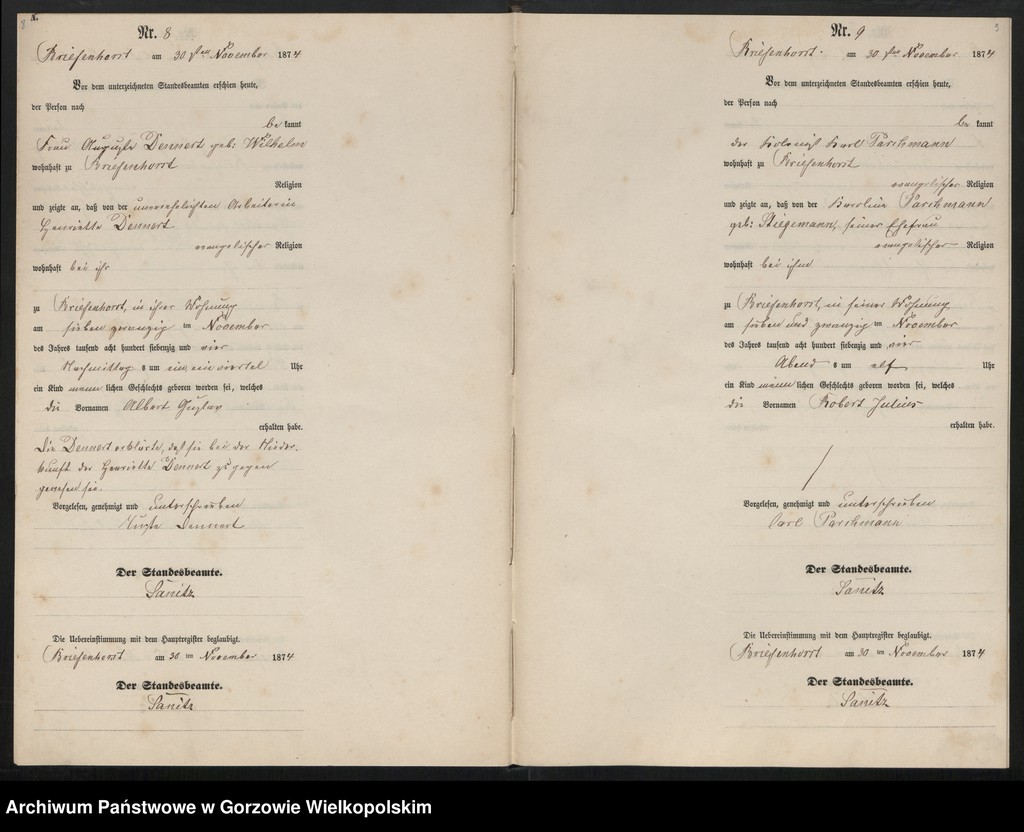 8
A.
Nr. 8
Kriesenhorst am 30 sten November 1874
Vor dem unterzeichneten Standesbeamten erschien heute,
der Person nach
be kannt
Frau Auguste Dennert geb: Wilhelm
wohnhaft zu Kriesenhorst
Religion
und zeigte an, daß von der unverehelichten Arbeiterin
Henriette Dennert
evangelischer Religion
wohnhaft bei ihr
zu Kriesenhorst, in ihrer Wohnung
am sieben zwanzig ten November
des Jahres tausend acht hundert siebenzig und vier
Nachmittag s um ein ein viertel Uhr
ein Kind männ lichen Geschlechts geboren worden sei, welches
die Vornamen Albert Gustav
erhalten habe.
Die Dennert erklärte, daß sie bei der Nieder-
kunft der Henriette Dennert zugegen
gewesen sei.
Vorgelesen, genehmigt und unterschrieben
Auguste Dennert
Der Standesbeamte.
Sanitz
Die Uebereinstimmung mit dem Hauptregister beglaubigt.
Kriesenhorst am 30 ten November 1874
Der Standesbeamte.
Sanitz
Nr. 9
Kriesenhorst am 30 sten November 1874
Vor dem unterzeichneten Standesbeamten erschien heute,
der Person nach
be kannt
der Kolonist Karl Parchmann
wohnhaft zu Kriesenhorst
evangelischer Religion
und zeigte an, daß von der Karoline Parchmann
geb: Stiegemann, seiner Ehefrau
evangelischer Religion
wohnhaft bei ihm
zu Kriesenhorst, in seiner Wohnung
am sieben und zwanzig ten November
des Jahres tausend acht hundert siebenzig und vier
Abend s um elf Uhr
ein Kind männ lichen Geschlechts geboren worden sei, welches
die Vornamen Robert Julius
erhalten habe.
Vorgelesen, genehmigt und unterschrieben
Carl Parchmann
Der Standesbeamte.
Sanitz
Die Uebereinstimmung mit dem Hauptregister beglaubigt.
Kriesenhorst am 30 ten November 1874
Der Standesbeamte.
Sanitz
Archiwum Państwowe w Gorzowie Wielkopolskim